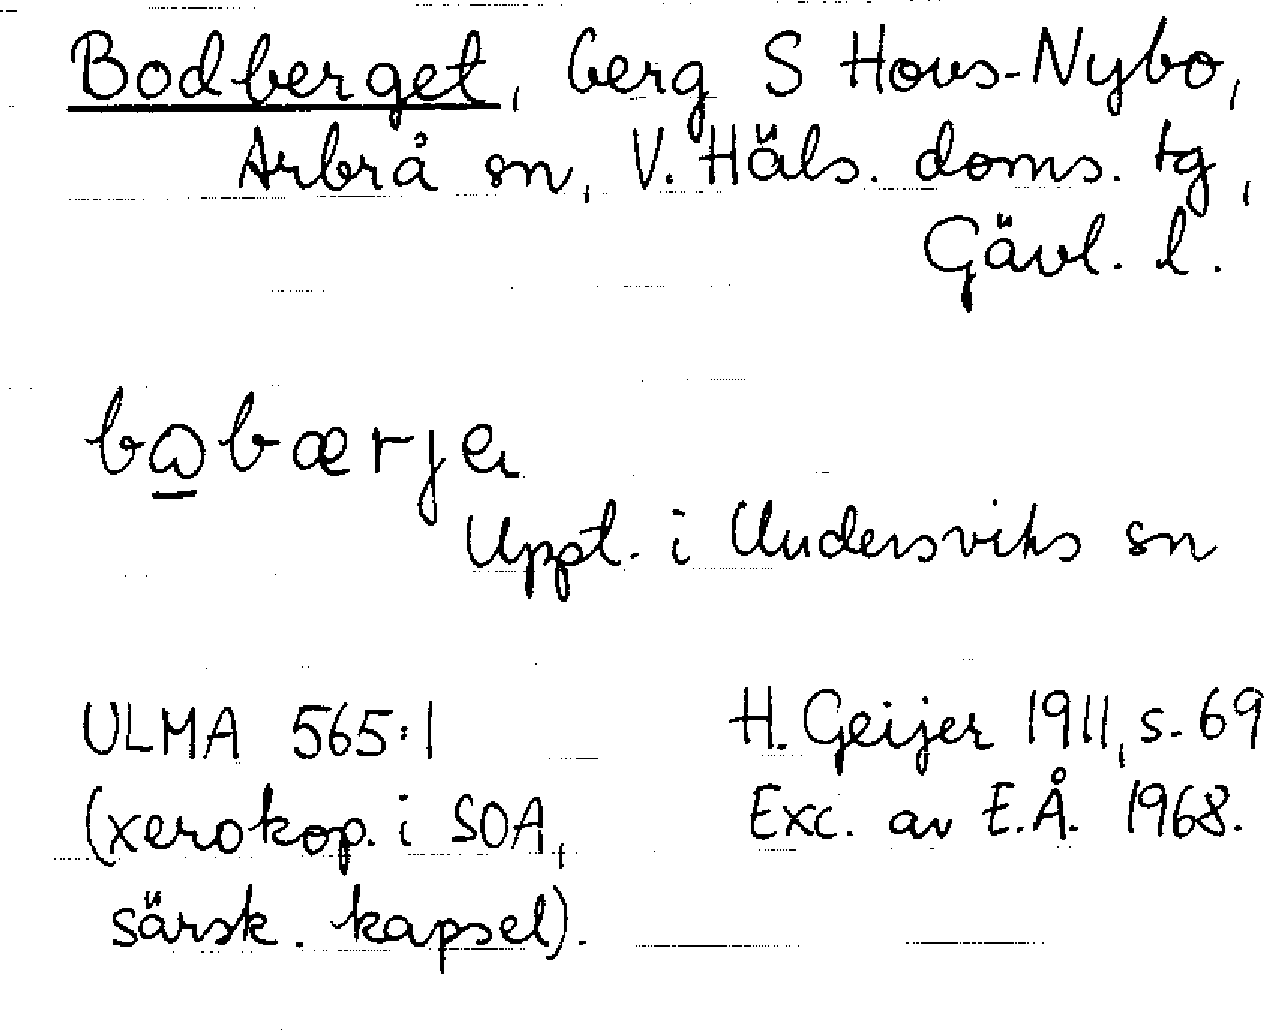 Bodberget, berg S Hovs-Nybo,
Arbrå sn, V. Häls. doms. tg,
Gävl. l.
bɷbærjeɩ
Uppt. i Undersviks sn
ULMA 565:1
(xerokop. i SOA,
särsk. kapsel).
H. Geijer 1911, s. 69
Exc. av E.Å. 1968.